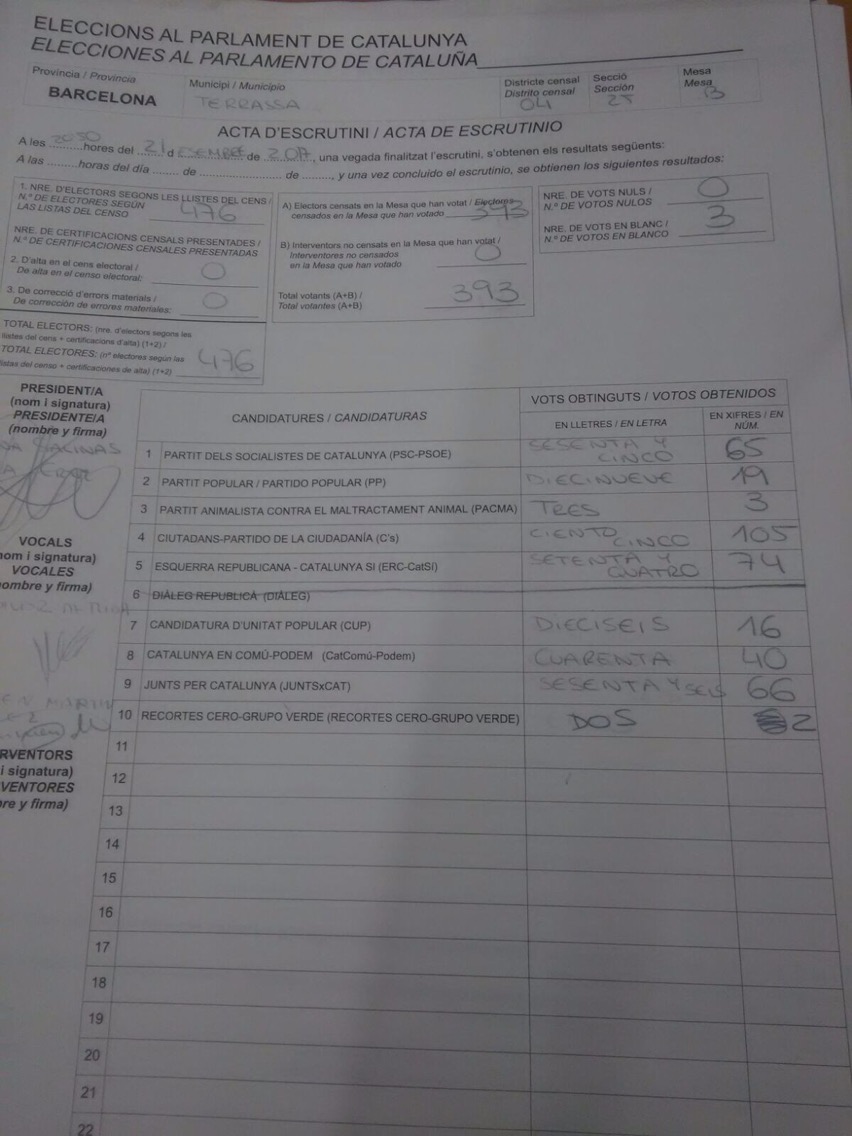 ELECCIONS AL PARLAMENT DE CATALUNYA
ELECCIONES AL PARLAMENTO DE CATALUÑA
Província / Provincia
BARCELONA
Municipi / Municipio
TERRASSA
Districte censal
Distrito censal
04
Secció
Sección
25
Mesa
Mesa
B
ACTA D'ESCRUTINI / ACTA DE ESCRUTINIO
A les 2030 hores del 21 d ESEMBRE de 2017, una vegada finalitzat l'escrutini, s'obtenen els resultats següents:
A las .........horas del día ....... de ........................ de ......., y una vez concluido el escrutinio, se obtienen los siguientes resultados:
1. NRE. D'ELECTORS SEGONS LES LLISTES DEL CENS /
N.º DE ELECTORES SEGÚN
LAS LISTAS DEL CENSO 476
NRE. DE CERTIFICACIONS CENSALS PRESENTADES /
N.º DE CERTIFICACIONES CENSALES PRESENTADAS
2. D'alta en el cens electoral /
De alta en el censo electoral: 0
3. De correcció d'errors materials /
De corrección de errores materiales: 0
TOTAL ELECTORS: (nre. d'electors segons les
llistes del cens + certificacions d'alta) (1+2) /
TOTAL ELECTORES: (nº electores según las
listas del censo + certificaciones de alta) (1+2) 476
A) Electors censats en la Mesa que han votat / Electores
censados en la Mesa que han votado 393
B) Interventors no censats en la Mesa que han votat /
Interventores no censados
en la Mesa que han votado 0
Total votants (A+B) /
Total votantes (A+B) 393
NRE. DE VOTS NULS /
N.º DE VOTOS NULOS 0
NRE. DE VOTS EN BLANC /
N.º DE VOTOS EN BLANCO 3
PRESIDENT/A
(nom i signatura)
PRESIDENTE/A
(nombre y firma)
VOCALS
nom i signatura)
VOCALES
ombre y firma)
RVENTORS
i signatura)
VENTORES
re y firma)
CANDIDATURES / CANDIDATURAS
VOTS OBTINGUTS / VOTOS OBTENIDOS
EN LLETRES / EN LETRA
EN XIFRES / EN
NÚM.
1 PARTIT DELS SOCIALISTES DE CATALUNYA (PSC-PSOE) SESENTA Y CINCO 65
2 PARTIT POPULAR / PARTIDO POPULAR (PP) DIECINUEVE 19
3 PARTIT ANIMALISTA CONTRA EL MALTRACTAMENT ANIMAL (PACMA) TRES 3
4 CIUTADANS-PARTIDO DE LA CIUDADANÍA (C's) CIENTO CINCO 105
5 ESQUERRA REPUBLICANA - CATALUNYA SI (ERC-CatSí) SETENTA Y CUATRO 74
6 DIÀLEG REPUBLICÀ (DIÀLEG)
7 CANDIDATURA D'UNITAT POPULAR (CUP) DIECISEIS 16
8 CATALUNYA EN COMÚ-PODEM (CatComú-Podem) CUARENTA 40
9 JUNTS PER CATALUNYA (JUNTSxCAT) SESENTA Y SEIS 66
10 RECORTES CERO-GRUPO VERDE (RECORTES CERO-GRUPO VERDE) DOS 2
11
12
13
14
15
16
17
18
19
20
21
22